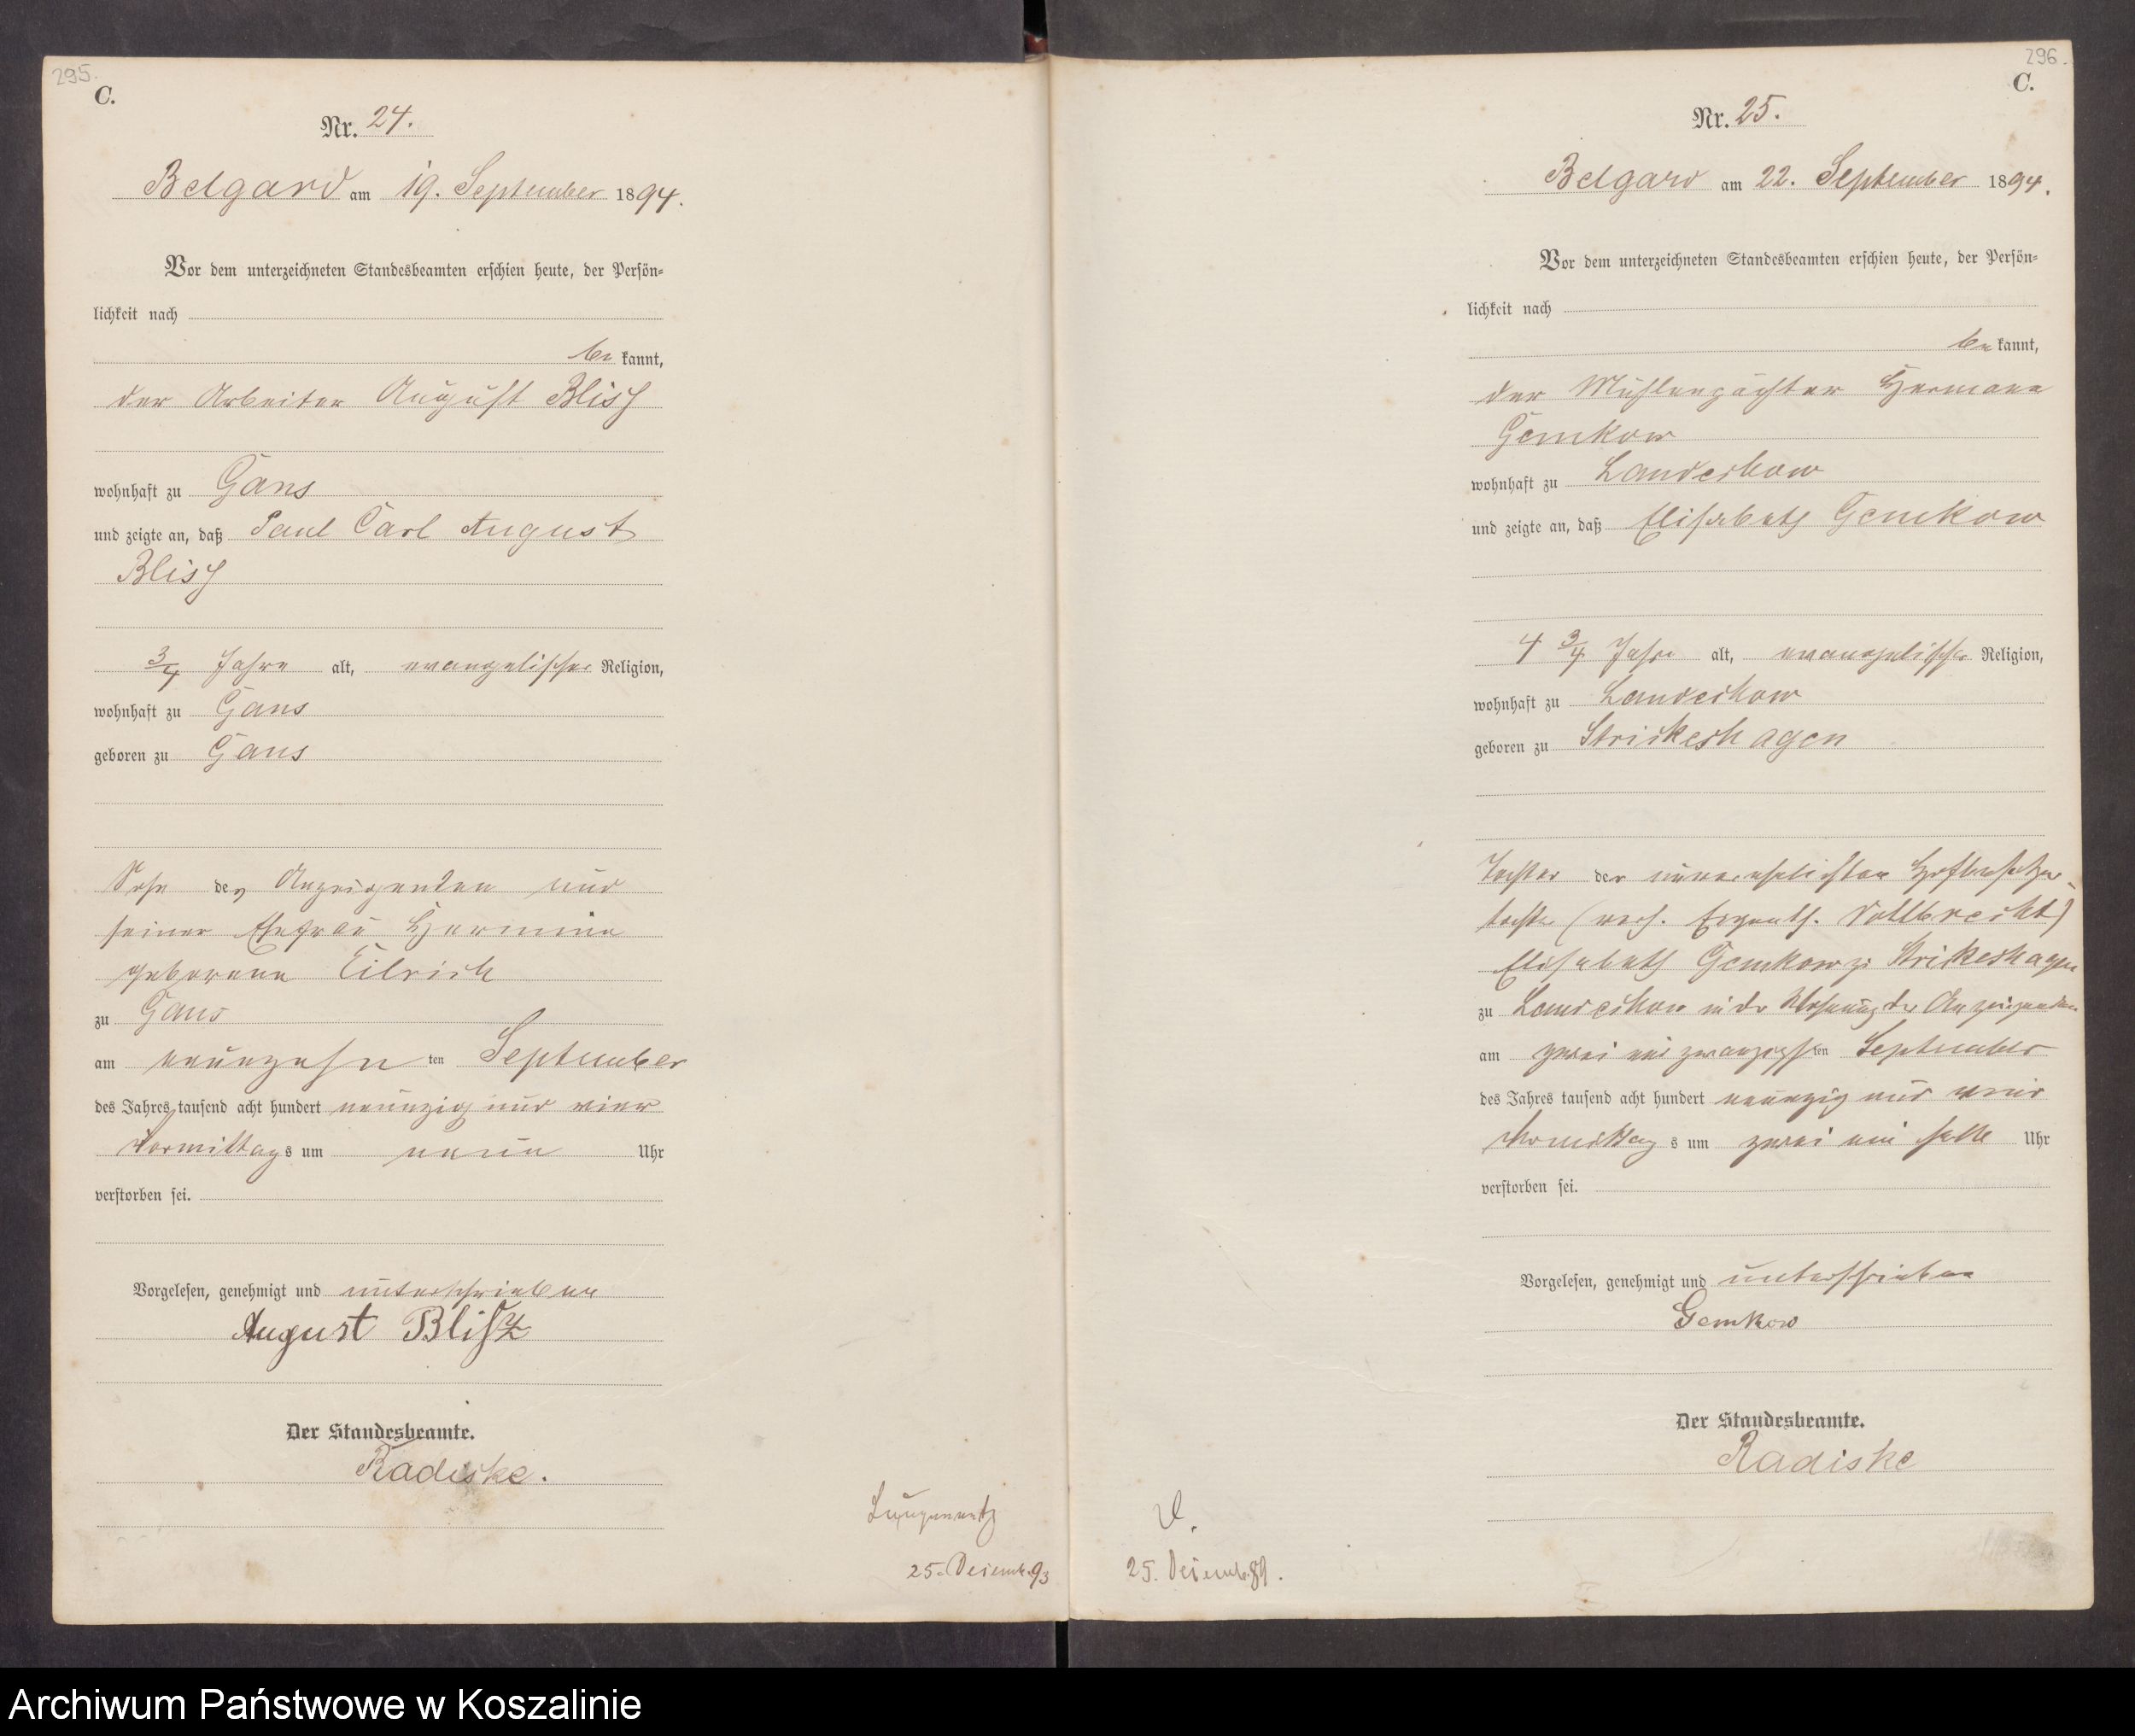 295.
C.
Nr. 24.
Belgard am 19. September 1894.
Vor dem unterzeichneten Standesbeamten erschien heute, der Persön-
lichkeit nach
be kannt,
der Arbeiter August Blisch
wohnhaft zu Gans
und zeigte an, daß Paul Carl August
Blisch
3/4 Jahre alt, evangelischer Religion,
wohnhaft zu Gans
geboren zu Gans
Sohn des Anzeigenden und
seiner Ehefrau Hermine
geborene Eilrich
zu Gans
am neunzehn ten September
des Jahres tausend acht hundert neunzig und vier
Vormittags um neun Uhr
verstorben sei.
Vorgelesen, genehmigt und unterschrieben
August
Der Standesbeamte.
Radiske.
25. Decemb. 93
296.
C.
Nr. 25.
Belgard am 22. September 1894.
Vor dem unterzeichneten Standesbeamten erschien heute, der Persön-
lichkeit nach
be kannt,
der Mühlenpächter Hermann
Gemkow
wohnhaft zu Landechow
und zeigte an, daß Elisabeth Gemkow
4 3/4 Jahre alt, evangelischer Religion,
wohnhaft zu Landechow
geboren zu Strickershagen
Tochter der unverehelichten Hofbesitzer-
tochter (verh. Eigenth. Vollbrecht)
Elisabeth Gemkow zu
zu Landechow in der Wohnung des Anzeigenden
am zwei und zwanzigsten September
des Jahres tausend acht hundert neunzig und vier
s um zwei ein halb Uhr
verstorben sei.
Vorgelesen, genehmigt und unterschrieben
Gemkow
Der Standesbeamte.
Radiske
25. Decemb. 89.
Archiwum Państwowe w Koszalinie